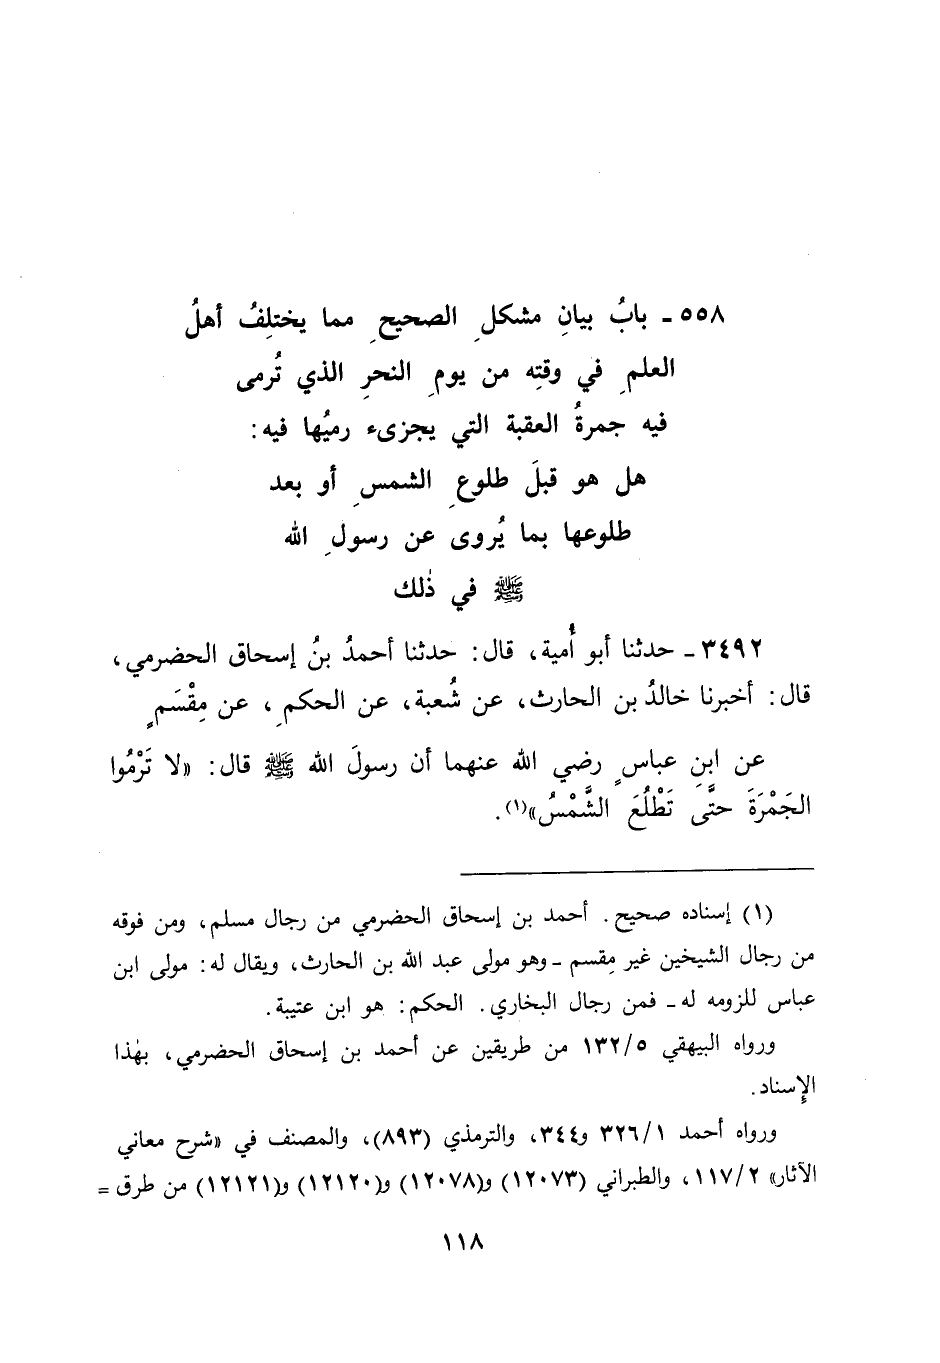 ٥٥٨ - بابُ بيانِ مشكلِ الصحيحِ مما يختلِفُ أهلُ
العلمِ في وقتِه من يومِ النحرِ الذي تُرمى
فيه جمرةُ العقبة التي يجزىء رميُها فيه:
هل هو قبلَ طلوعِ الشمسِ أو بعد
طلوعها بما يُروى عن رسولِ الله
ﷺ في ذٰلك
٣٤٩٢ - حدثنا أبو أُمية، قال: حدثنا أحمدُ بنُ إسحاق الحضرمي،
قال: أخبرنا خالدُ بن الحارث، عن شُعبة، عن الحكمِ، عن مِقْسَمٍ
عن ابنِ عباسٍ رضي الله عنهما أن رسولَ الله ﷺ قال: «لا تَرْمُوا
الجَمْرَةَ حتَّى تَطْلُعَ الشَّمْسُ»(١).
(١) إسناده صحيح. أحمد بن إسحاق الحضرمي من رجال مسلم، ومن فوقه
من رجال الشيخين غير مِقسم - وهو مولى عبد الله بن الحارث، ويقال له: مولى ابن
عباس للزومه له - فمن رجال البخاري. الحكم: هو ابن عتيبة.
ورواه البيهقي ١٣٢/٥ من طريقين عن أحمد بن إسحاق الحضرمي، بهٰذا
الإِسناد.
ورواه أحمد ٣٢٦/١ و٣٤٤، والترمذي (٨٩٣)، والمصنف في «شرح معاني
الآثار» ١١٧/٢، والطبراني (١٢٠٧٣) و(١٢٠٧٨) و(١٢١٢٠) و(١٢١٢١) من طرق =
١١٨